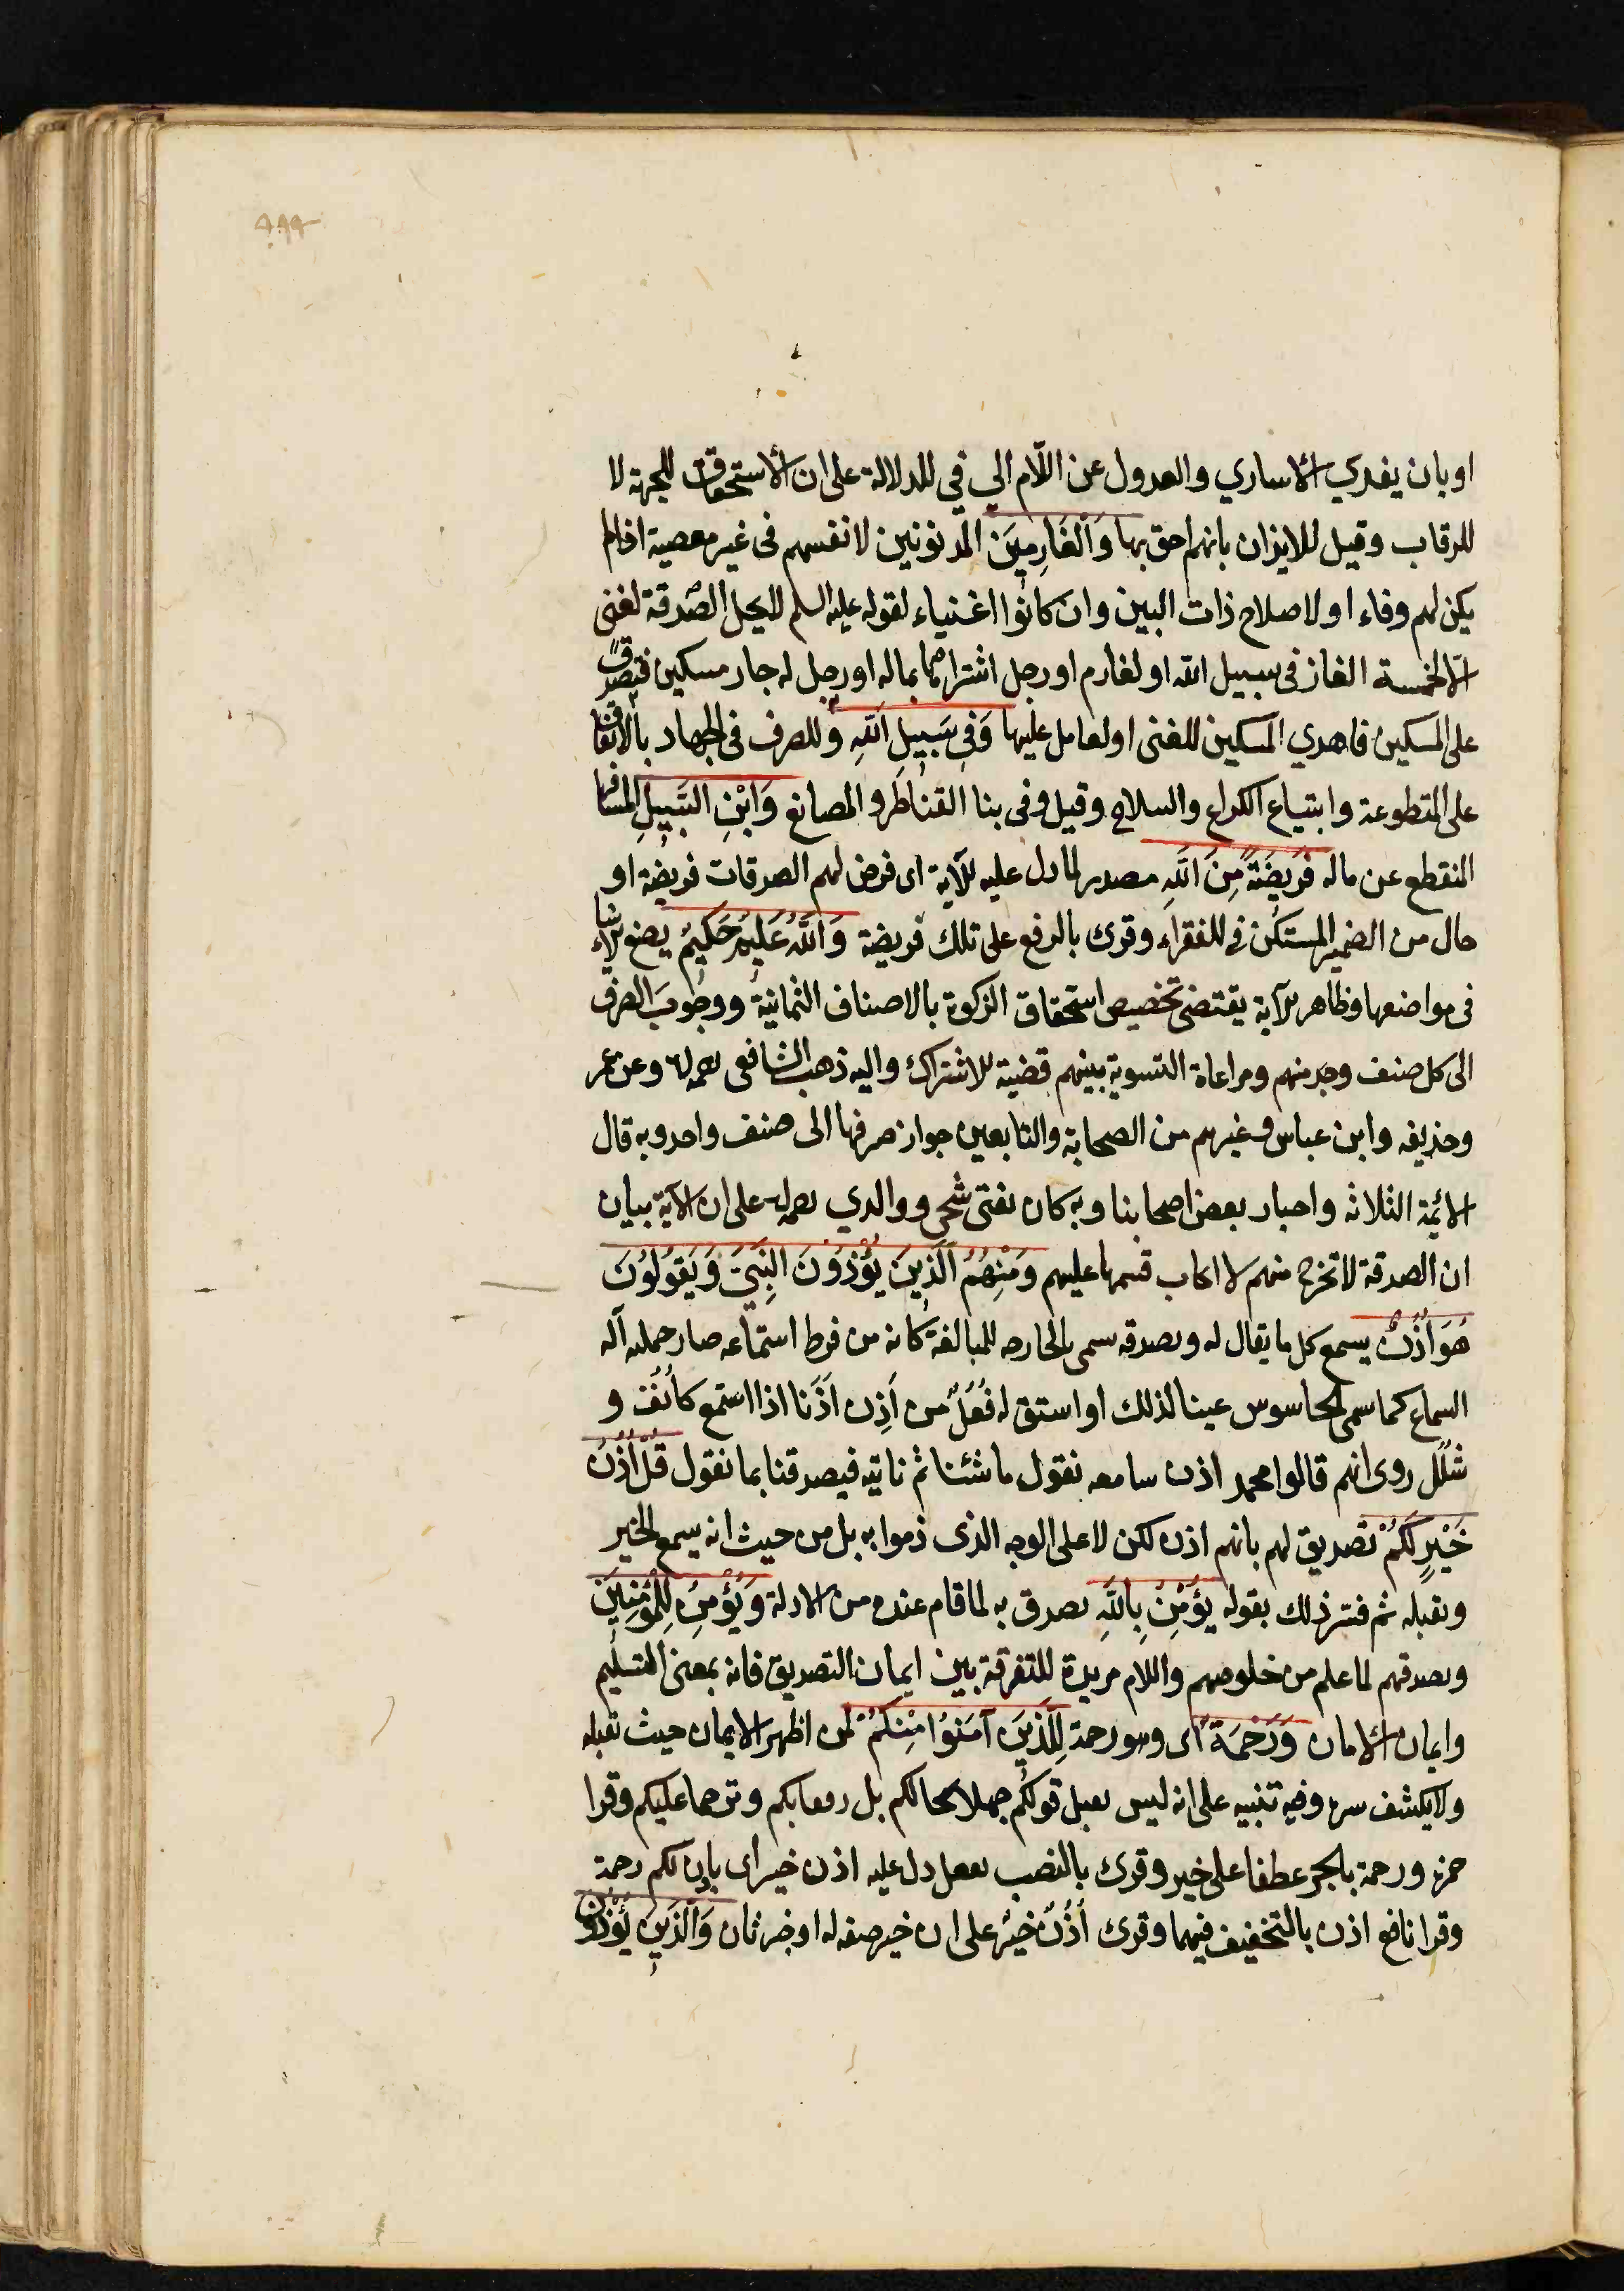 او بان يفدي الاساري والعدول عن اللّام الي في للدلالة على ان الاستحقاق للجهة لا
للرقاب وقيل للايذان بانهم احق بها وَالْغَارِمِينَ المديونين لانفسهم فى غير معصية اذا لم
يكن لهم وفاء او لاصلاح ذات البين وان كانوا اغنياء لقوله عليه السلم لا يحل الصّدقة لغنى
الّا لخمسة الغاز فى سبيل الله او لغارم او رجل اشتراها بماله او رجل له جار مسكين فتصدق
على المسكين فاهدي المسكين للغنى او لعامل عليها وَفِى سَبِيلِ اللّهِ وللصرف فى الجهاد بالانفاق
على المتطوعة وابتياع الكراع والسلاح وقيل وفى بنا القناطر والمصانع وَابْنِ السَّبِيلِ المسافر
المنقطع عن ماله فَرِيضَةً مِنَ اللّهِ مصدر لما دل عليه الآية اى فرض لهم الصدقات فريضة او
حال من الضمير المستكن في للفقراء وقرى بالرفع على تلك فريضة وَاللّهُ عَلِيمٌ حَكِيمٌ يضع الاشياء
فى مواضعها وظاهر الآية يقتضى تخصيص استحقاق الزكوة بالاصناف الثمانية ووجوب الصرف
الى كل صنف وجد منهم ومراعاة التسوية بينهم قضية للاشتراك واليه ذهب الشافعى وعن عمر
وحذيفه وابن عباس وغيرهم من الصحابة والتابعين جواز صرفها الى صنف واحد وبه قال
الائمة الثلاثه واختار بعض اصحابنا وبه كان يفتى شيخى ووالدي على ان الآية بيان
ان الصدقة لا تخرج منهم لا ايجاب قسمها عليهم وَمِنْهُمُ الَّذِينَ يُؤْذُونَ النَّبِيَّ وَيَقُولُونَ
هُوَ أُذُنٌ يسمع كل ما يقال له ويصدقه سمى بالجارحه للمبالغة كانه من فرط استماعه صار جملته آله
السماع كما سمى الجاسوس عينا لذلك او اشتق له فُعُلٌ من اَذِن اَذَنا اذا استمع كاُنُف و
شُلُل روى انهم قالوا محمد اذن سامعه نقول ما شئنا ثم ناتيه فيصدقنا بما نقول قُلْ أُذُنُ
خَيْرٍ لَكُمْ تصديق لهم بانهم اذن لكن لا على الوجه الذى ذموا به بل من حيث انه يسمع الخير
ويقبله ثم فسّر ذلك بقوله يُؤْمِنُ بِاللّهِ يصدق به لما قام عنده من الادلة وَيُؤْمِنُ لِلْمُؤْمِنِينَ
ويصدقهم لما علم من خلوصهم واللام مزيدة للتفرقة بين ايمان التصديق فانه بمعنى التسليم
وايمان الامان وَرَحْمَةٌ اى وهو رحمة لِلَّذِينَ آمَنُوا مِنْكُمْ لمن اظهر الايمان حيث يقبله
ولا يكشف سره وفيه تنبيه على انه ليس يقبل قولكم جهلا بحالكم بل رفقا بكم وترحما عليكم وقرا
حمزه ورحمة بالجر عطفا على خير وقرى بالنصب بفعل دل عليه اذن خير اى ياذن لكم رحمة
وقرا نافع اذن بالتخفيف فيهما وقرى أُذُنٌ خَيْرٌ على ان خير صفه له او خبر ثان وَالَّذِينَ يُؤْذُونَ